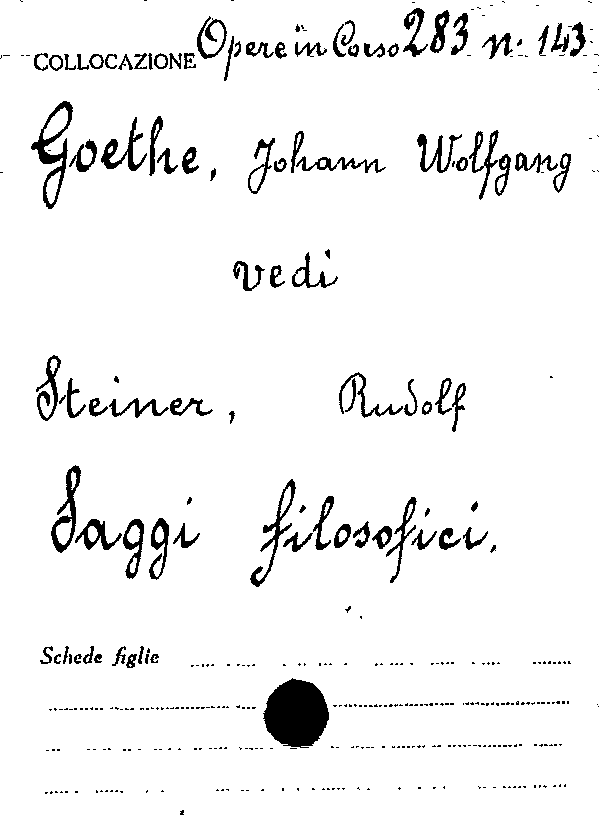 COLLOCAZIONE Opere in Corso 283 n. 143
Goethe, Johann Wolfgang
vedi
Steiner, Rudolf
Saggi filosofici.
Schede figlie